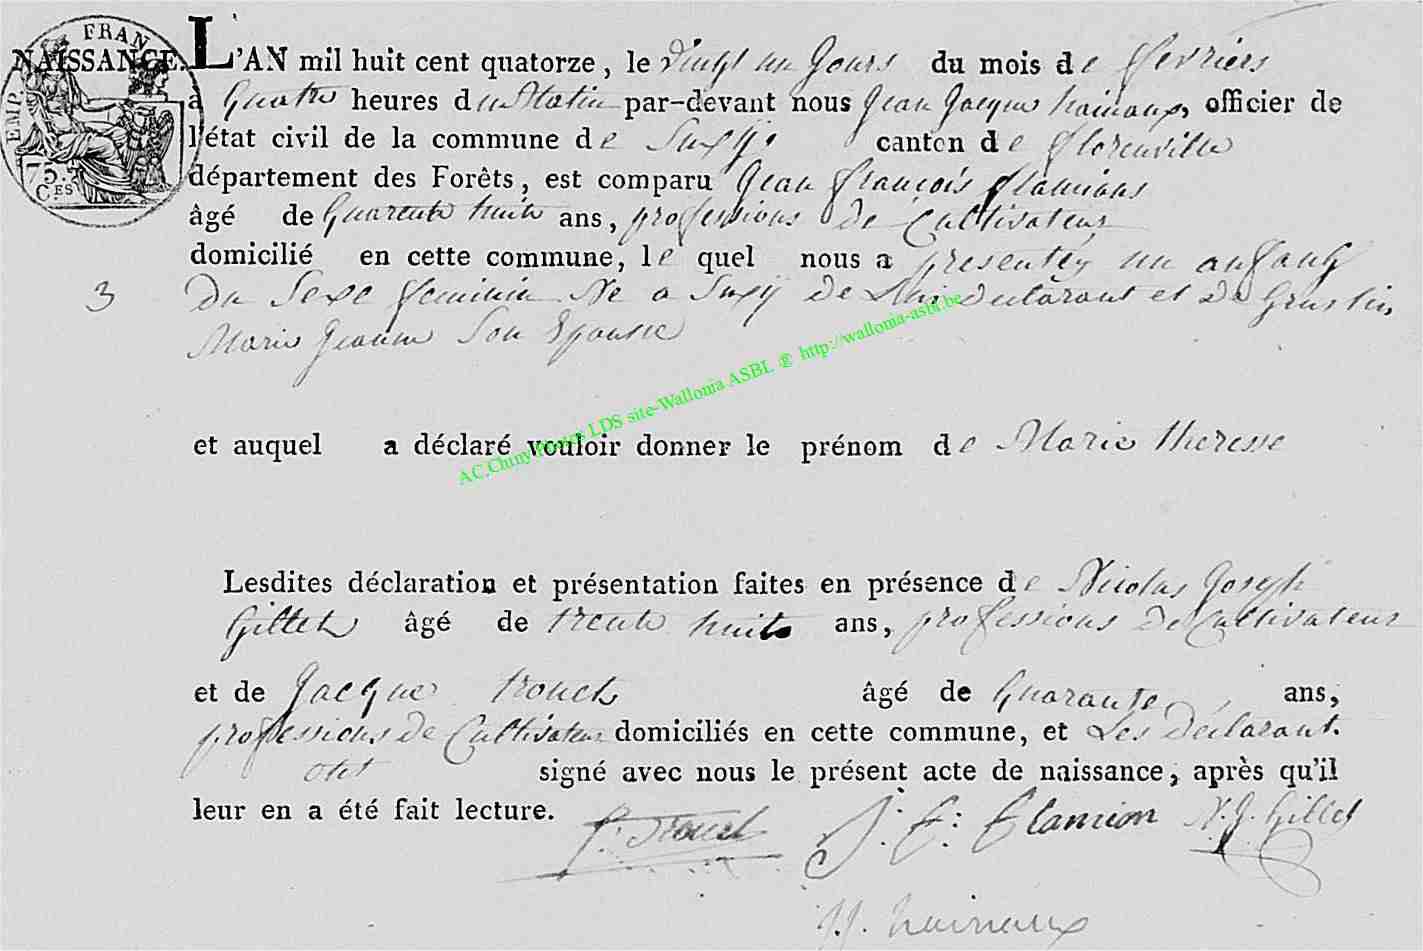 FRAN
EMP.
75.
C.ES
NAISSANCE. L'AN mil huit cent quatorze, le vingt un Jours du mois de fevriers
a Quatre heures du Matin par-devant nous Jean Jacque hainaux, officier de
l'état civil de la commune de Suxy, canton de florenville
département des Forêts, est comparu Jean françois flamions
âgé de Quarente huite ans, professions de Cultivateur
domicilié en cette commune, le quel nous a presentéz un anfant
3 Du Sexe feminin Ne a Suxy de Lui declarant et De Grustin,
Marie Jeanne Son Epousse
et auquel a déclaré vouloir donner le prénom de Marie theresse
Lesdites déclaration et présentation faites en présence de Nicolas Joseph
Gillet âgé de trente huite ans, professions De Cultivateur
et de Jacque trouet âgé de Quarante ans,
professions de Cultivateur domiciliés en cette commune, et Les Declarant.
signé avec nous le présent acte de naissance, après qu'il
leur en a été fait lecture.
J. F. flamion N. J. Gillet
J. J. hainaux
AC.Chiny Photos LDS site-Wallonia ASBL ® http://wallonia-asbl.be